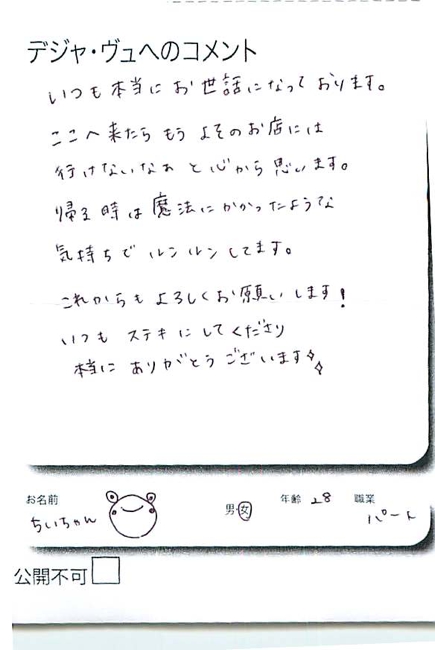 デジャ・ヴュへのコメント
いつも本当にお世話になっております。
ここへ来たらもうよそのお店には
行けないなぁと心から思います。
帰る時は魔法にかかったような
気持ちでルンルンしてます。
これからもよろしくお願いします!
いつもステキにしてくださり
本当にありがとうございます
お名前 ちいちゃん 男・女 年齢 28 職業 パート
公開不可